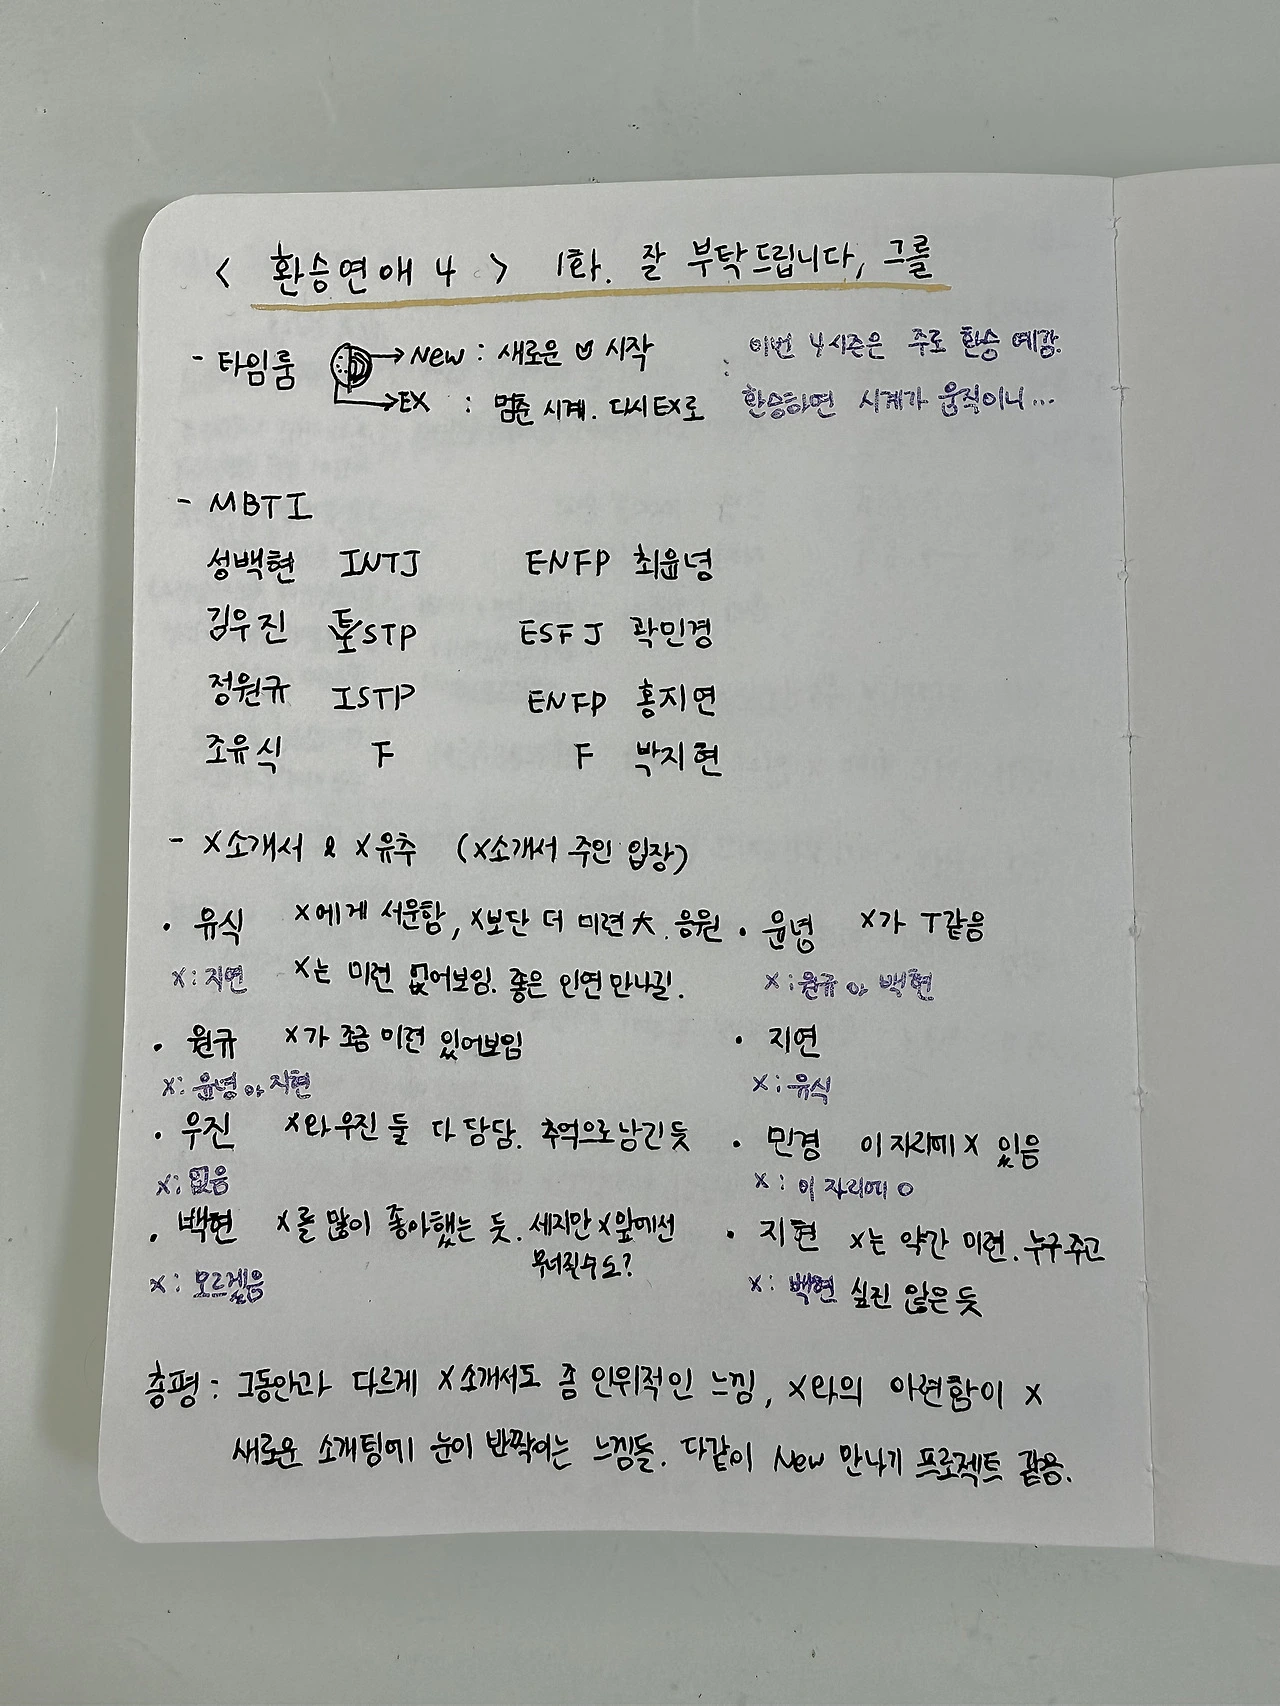 < 환승연애 4 > 1화. 잘 부탁드립니다, 그를
- 타임룸 → New : 새로운 ♡ 시작
→ EX : 멈춘 시계. 다시 EX로
: 이번 4시즌은 주로 환승 예감.
환승하면 시계가 움직이니...
- MBTI
성백현 INTJ ENFP 최윤녕
김우진 STP ESFJ 곽민경
정원규 ISTP ENFP 홍지연
조유식 F F 박지현
- X소개서 & X유추 (X소개서 주인 입장)
· 유식 X에게 서운함, X보단 더 미련 大. 응원
X: 지연 X는 미련 없어보임. 좋은 인연 만나길.
· 윤녕 X가 T같음
X: 원규 or 백현
· 원규 X가 조금 미련 있어보임
X: 윤녕 or 지현
· 지연
X: 유식
· 우진 X와 우진 둘 다 담담. 추억으로 남긴 듯
X: 없음
· 민경 이 자리에 X 있음
X: 이 자리에 O
· 백현 X를 많이 좋아했는 듯. 세지만 X앞에선
무너질수도?
X: 모르겠음
· 지현 X는 약간 미련. 누구 주고
X: 백현 싶진 않은 듯
총평 : 그동안과 다르게 X소개서도 좀 인위적인 느낌, X와의 아련함이 X
새로운 소개팅에 눈이 반짝이는 느낌들. 다같이 New 만나기 프로젝트 같음.